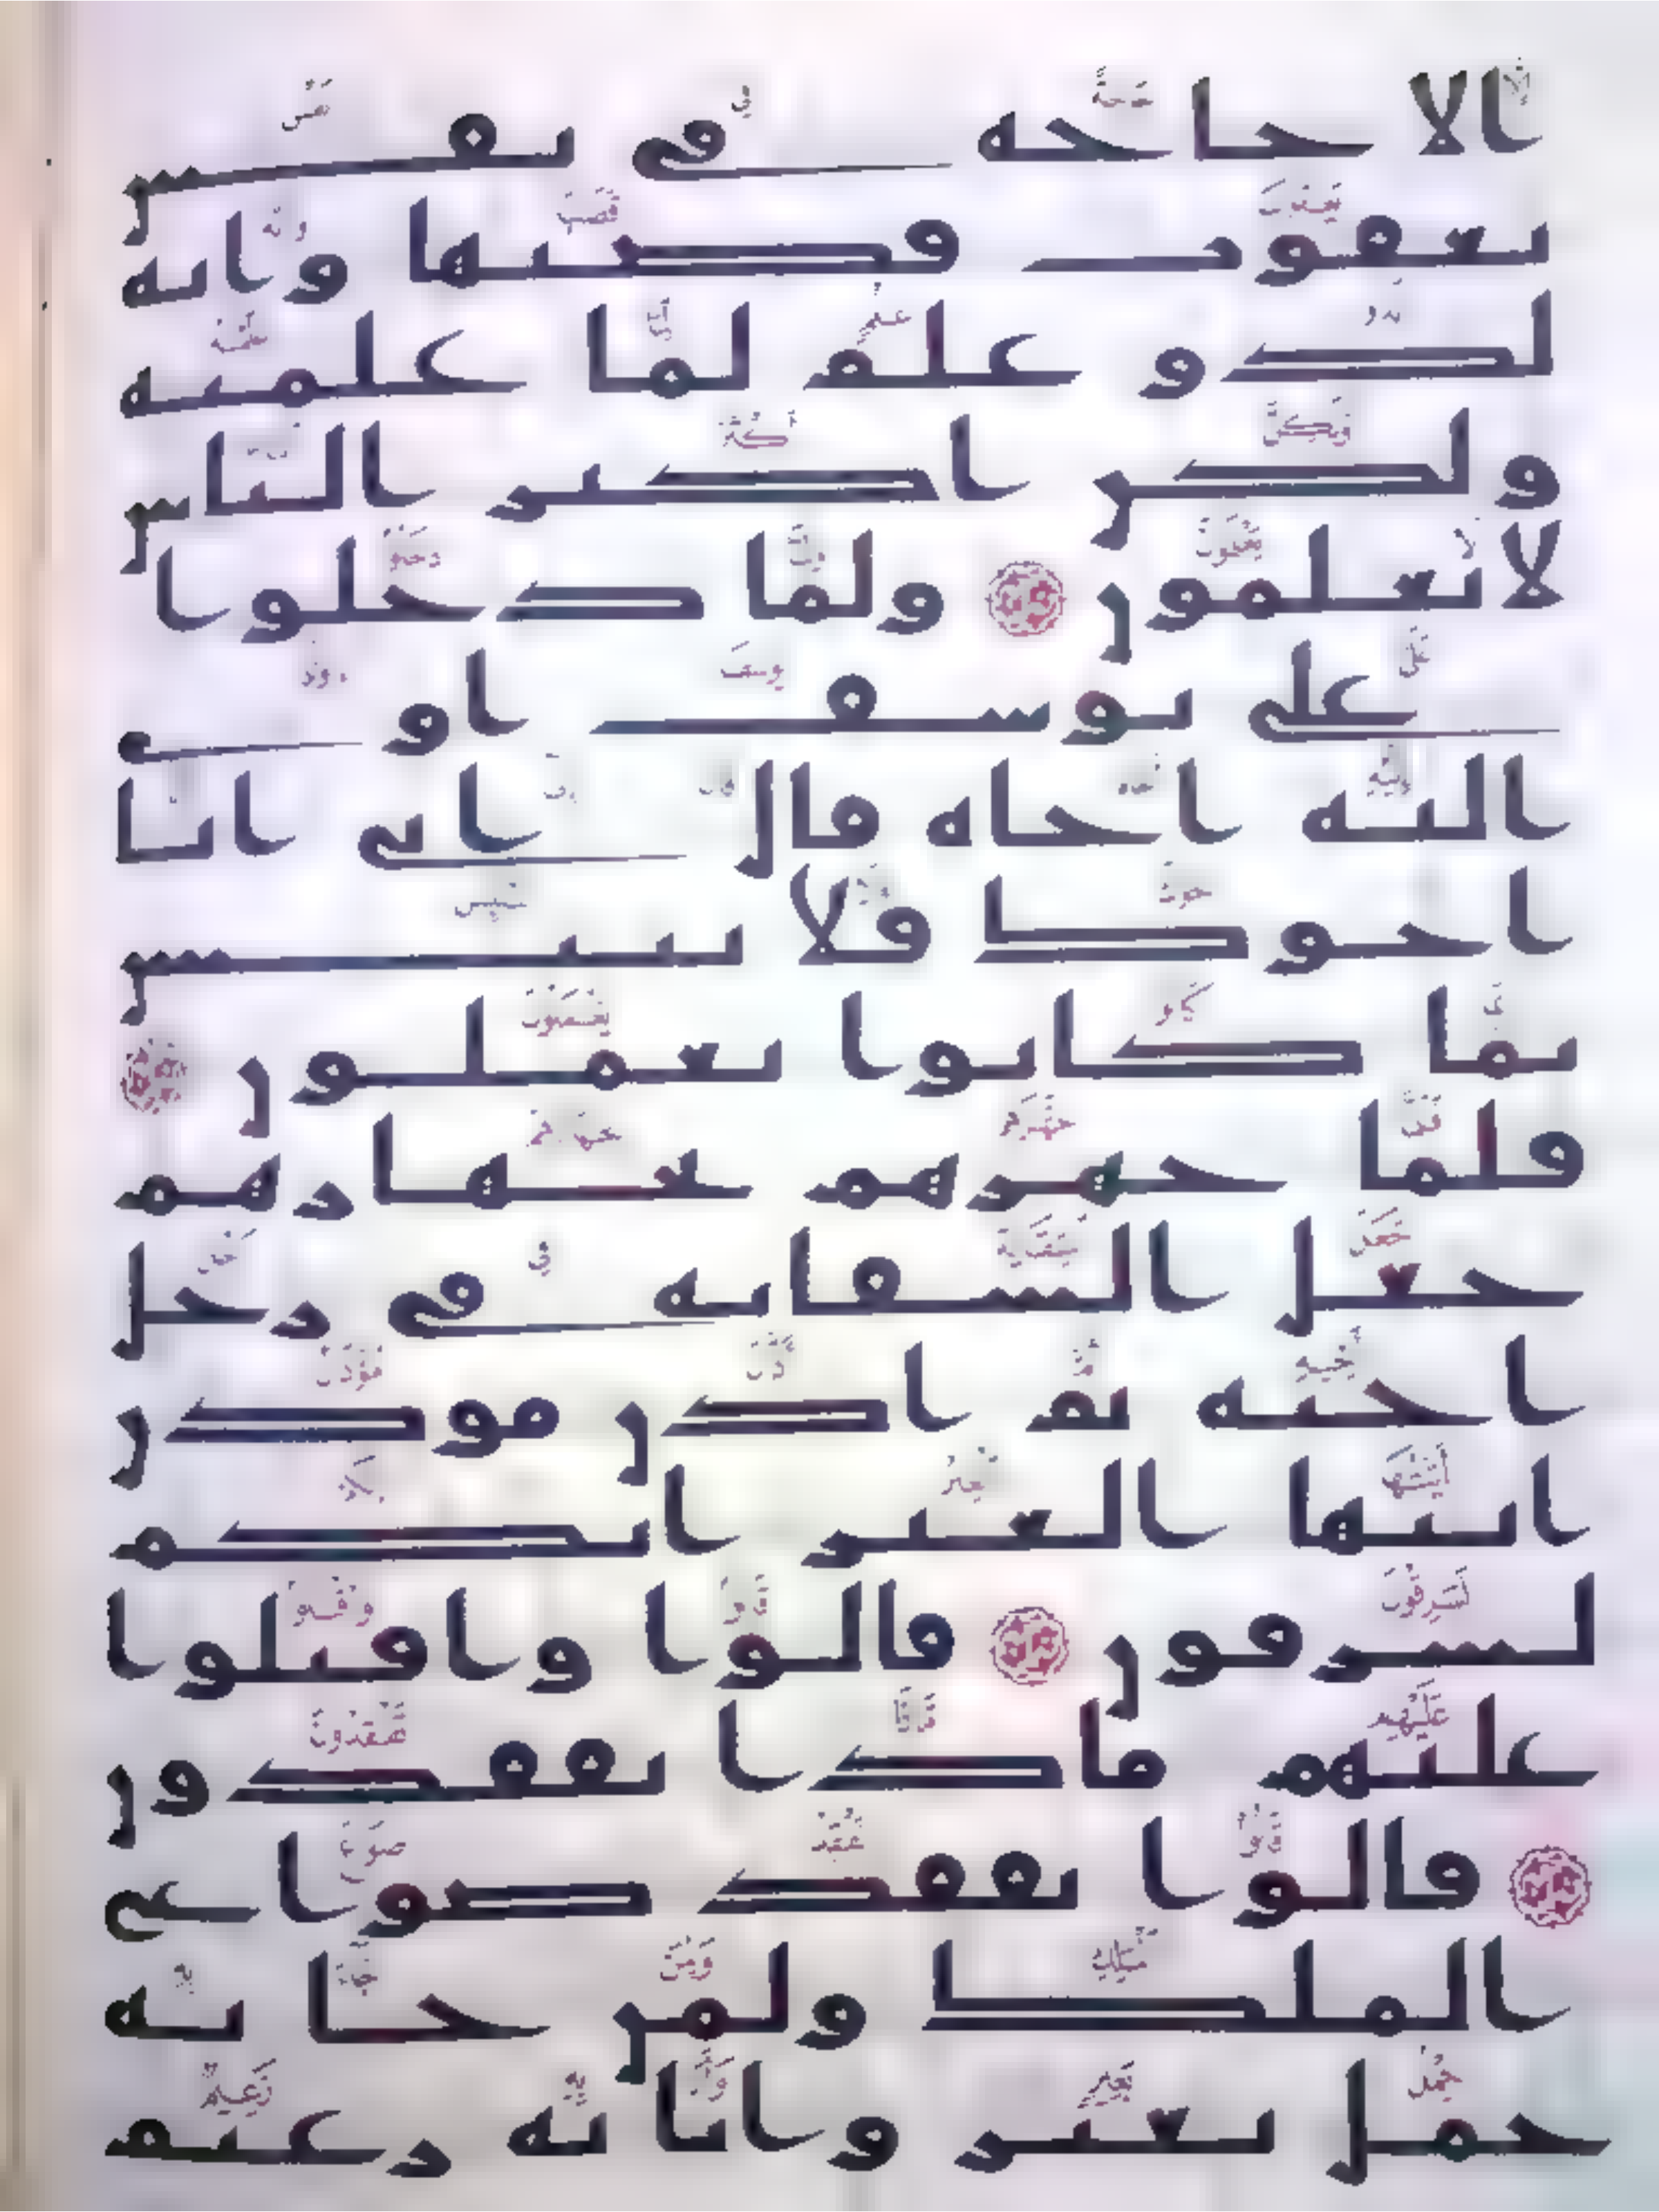 الا حاجة في نفس
يعقوب قضيها وانه
لذو علم لما علمنه
ولكن اكثر الناس
لا يعلمون ولما دخلوا
على يوسف اوى
اليه اخاه قال اني انا
اخوك فلا تبتئس
بما كانوا يعملون
فلما جهزهم بجهازهم
جعل السقاية في رحل
اخيه ثم اذن موذن
ايتها العير انكم
لسرقون قالوا واقبلوا
عليهم ماذا تفقدون
قالوا نفقد صواع
الملك ولمن جا به
حمل بعير وانا به زعيم